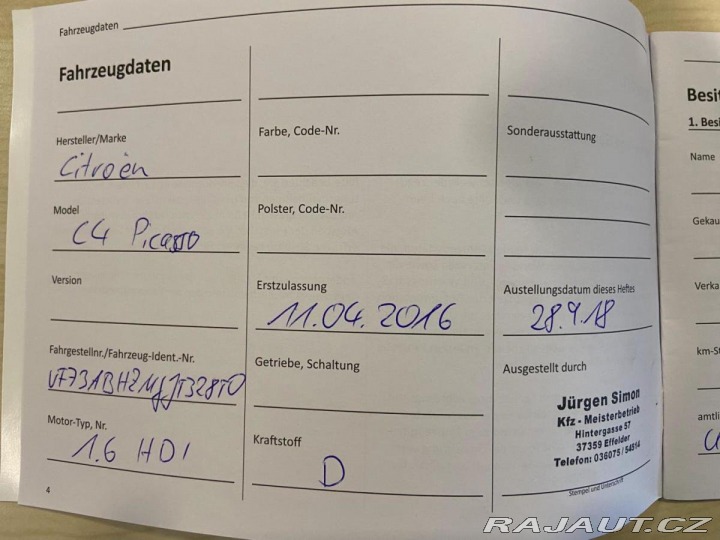 Fahrzeugdaten
Fahrzeugdaten
Hersteller/Marke
Citroèn
Model
C4 Picasso
Version
Fahrgestellnr./Fahrzeug-Ident.-Nr.
Motor-Typ, Nr.
1.6 HDI
4
Farbe, Code-Nr.
Polster, Code-Nr.
Erstzulassung
11.04.2016
Getriebe, Schaltung
Kraftstoff
D
Sonderausstattung
Austellungsdatum dieses Heftes
28.9.18
Ausgestellt durch
Jürgen Simon
Kfz - Meisterbetrieb
Hintergasse 57
37359 Effelder
Telefon: 036075 / 54514
Stempel und Unterschrift
Besit
1. Besi
Name
Gekau
Verka
km-St
amtli
RAJAUT.CZ